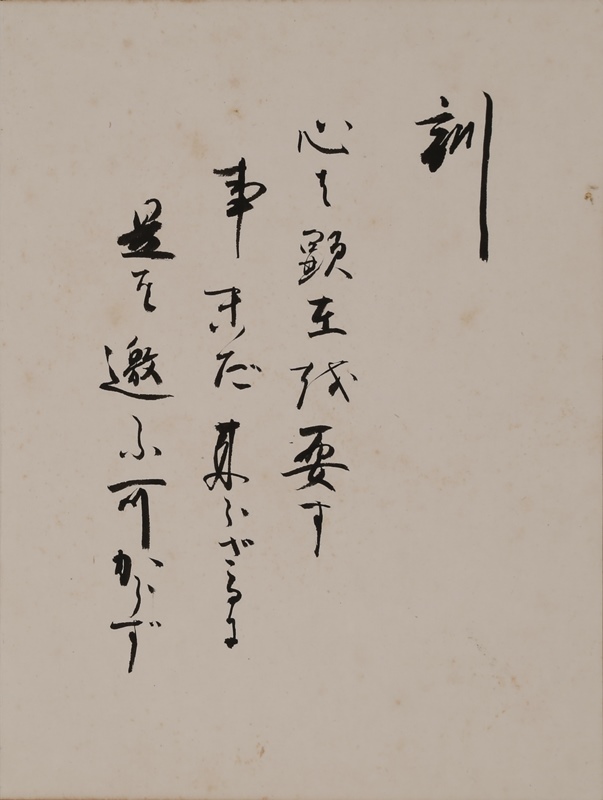 訓
心は顕在を要す
事未だ来らざるに
是を邀ふ可からず